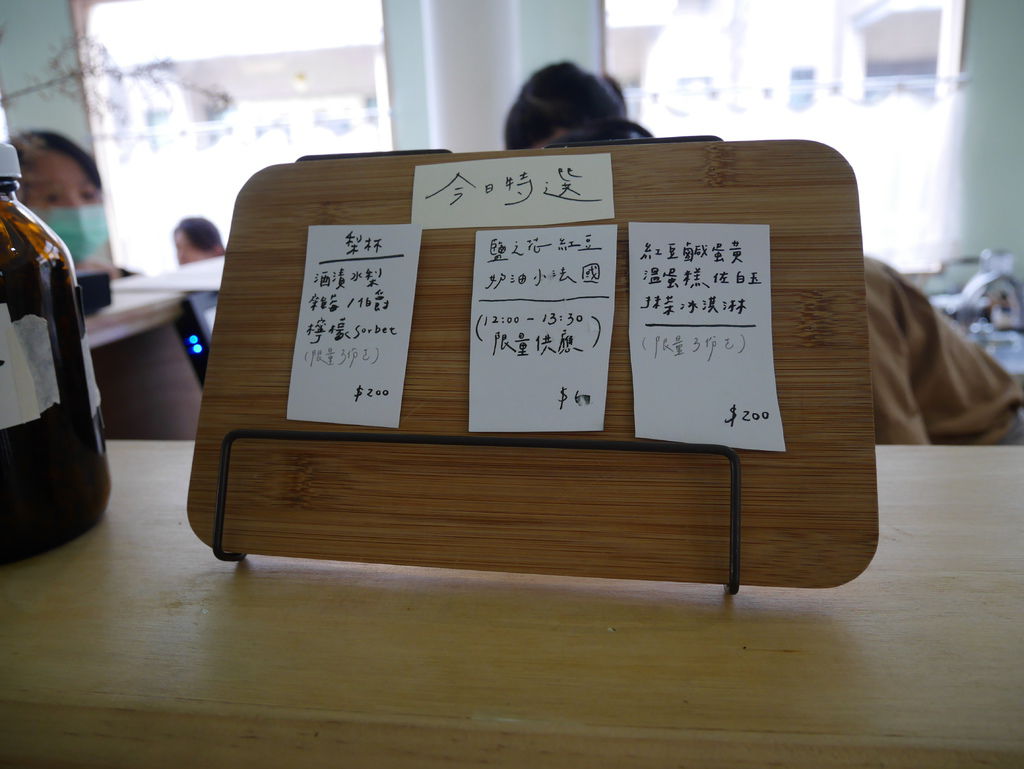 今日特選
梨杯
酒漬水梨
雜莓/伯爵
檸檬sorbet
(限量3份)
$200
鹽之花紅豆
奶油小法國
(12:00-13:30
限量供應)
紅豆鹹蛋黃
溫蛋糕佐白玉
抹茶冰淇淋
(限量3份)
$200